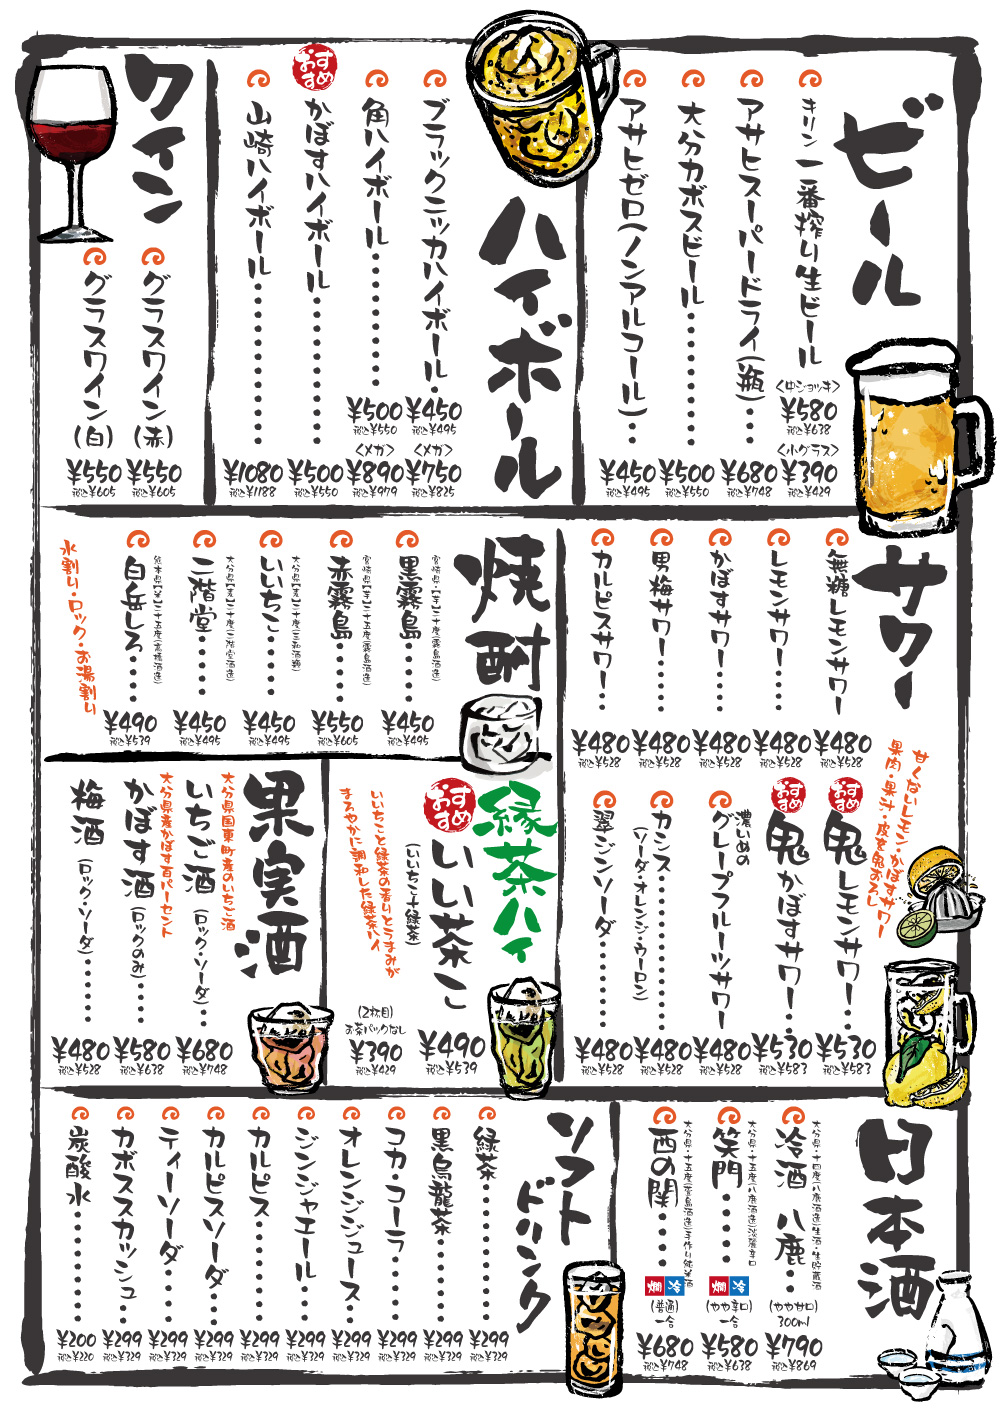 ビール
キリン 一番搾り生ビール
<中ジョッキ>
¥580
税込¥638
<小グラス>
¥390
税込¥429
アサヒスーパードライ(瓶)‥
¥680
税込¥748
大分カボスビール
¥500
税込¥550
アサヒゼロ(ノンアルコール)‥
¥450
税込¥495
ハイボール
ブラックニッカハイボール
¥450
税込¥495
<メガ>
¥750
税込¥825
角ハイボール
¥500
税込¥550
<メガ>
¥890
税込¥979
おすすめ
かぼすハイボール
¥500
税込¥550
山崎ハイボール
¥1080
税込¥1188
ワイン
グラスワイン(赤)
¥550
税込¥605
グラスワイン(白)
¥550
税込¥605
サワー
無糖レモンサワー
¥480
税込¥528
レモンサワー
¥480
税込¥528
かぼすサワー
¥480
税込¥528
男梅サワー
¥480
税込¥528
カルピスサワー
¥480
税込¥528
甘くないレモン・かぼすサワー
果肉・果汁・皮を鬼おろし
おすすめ
鬼レモンサワー
¥530
税込¥583
おすすめ
鬼かぼすサワー
¥530
税込¥583
濃いめの
グレープフルーツサワー
¥480
税込¥528
カシス
(ソーダ・オレンジ・ウーロン)
¥480
税込¥528
翠ジンソーダ
¥480
税込¥528
焼酎
宮崎県・【芋】二十五度(霧島酒造)
黒霧島
¥450
税込¥495
宮崎県【芋】二十五度(霧島酒造)
赤霧島
¥550
税込¥605
大分県【麦】二十度(三和酒類)
いいちこ
¥450
税込¥495
大分県【麦】二十度(二階堂酒造)
二階堂
¥450
税込¥495
熊本県【米】二十五度(高橋酒造)
白岳しろ
¥490
税込¥539
水割り・ロック・お湯割り
緑茶ハイ
おすすめ
いい茶こ
(いいちこ+緑茶)
¥490
税込¥539
いいちこと緑茶の香りとうまみが
まろやかに調和した緑茶ハイ
(2杯目)
お茶パックなし
¥390
税込¥429
果実酒
大分県国東町産のいちご酒
いちご酒(ロック・ソーダ)
¥680
税込¥748
大分県産かぼす百パーセント
かぼす酒(ロックのみ)
¥580
税込¥638
梅酒(ロック・ソーダ)
¥480
税込¥528
日本酒
大分県・十四度(八鹿酒造)生酒・生貯蔵酒
冷酒 八鹿
(やや甘口)
300ml
¥790
税込¥869
大分県・十五度(八鹿酒造)淡麗辛口
笑門
冷 燗
(やや辛口)
一合
¥580
税込¥638
大分県・十五度(萱島酒造)手作り純米酒
西の関
冷 燗
(普通)
一合
¥680
税込¥748
ソフトドリンク
緑茶
¥299
税込¥329
黒烏龍茶
¥299
税込¥329
コカ・コーラ
¥299
税込¥329
オレンジジュース
¥299
税込¥329
ジンジャエール
¥299
税込¥329
カルピス
¥299
税込¥329
カルピスソーダ
¥299
税込¥329
ティーソーダ
¥299
税込¥329
カボススカッシュ
¥299
税込¥329
炭酸水
¥200
税込¥220